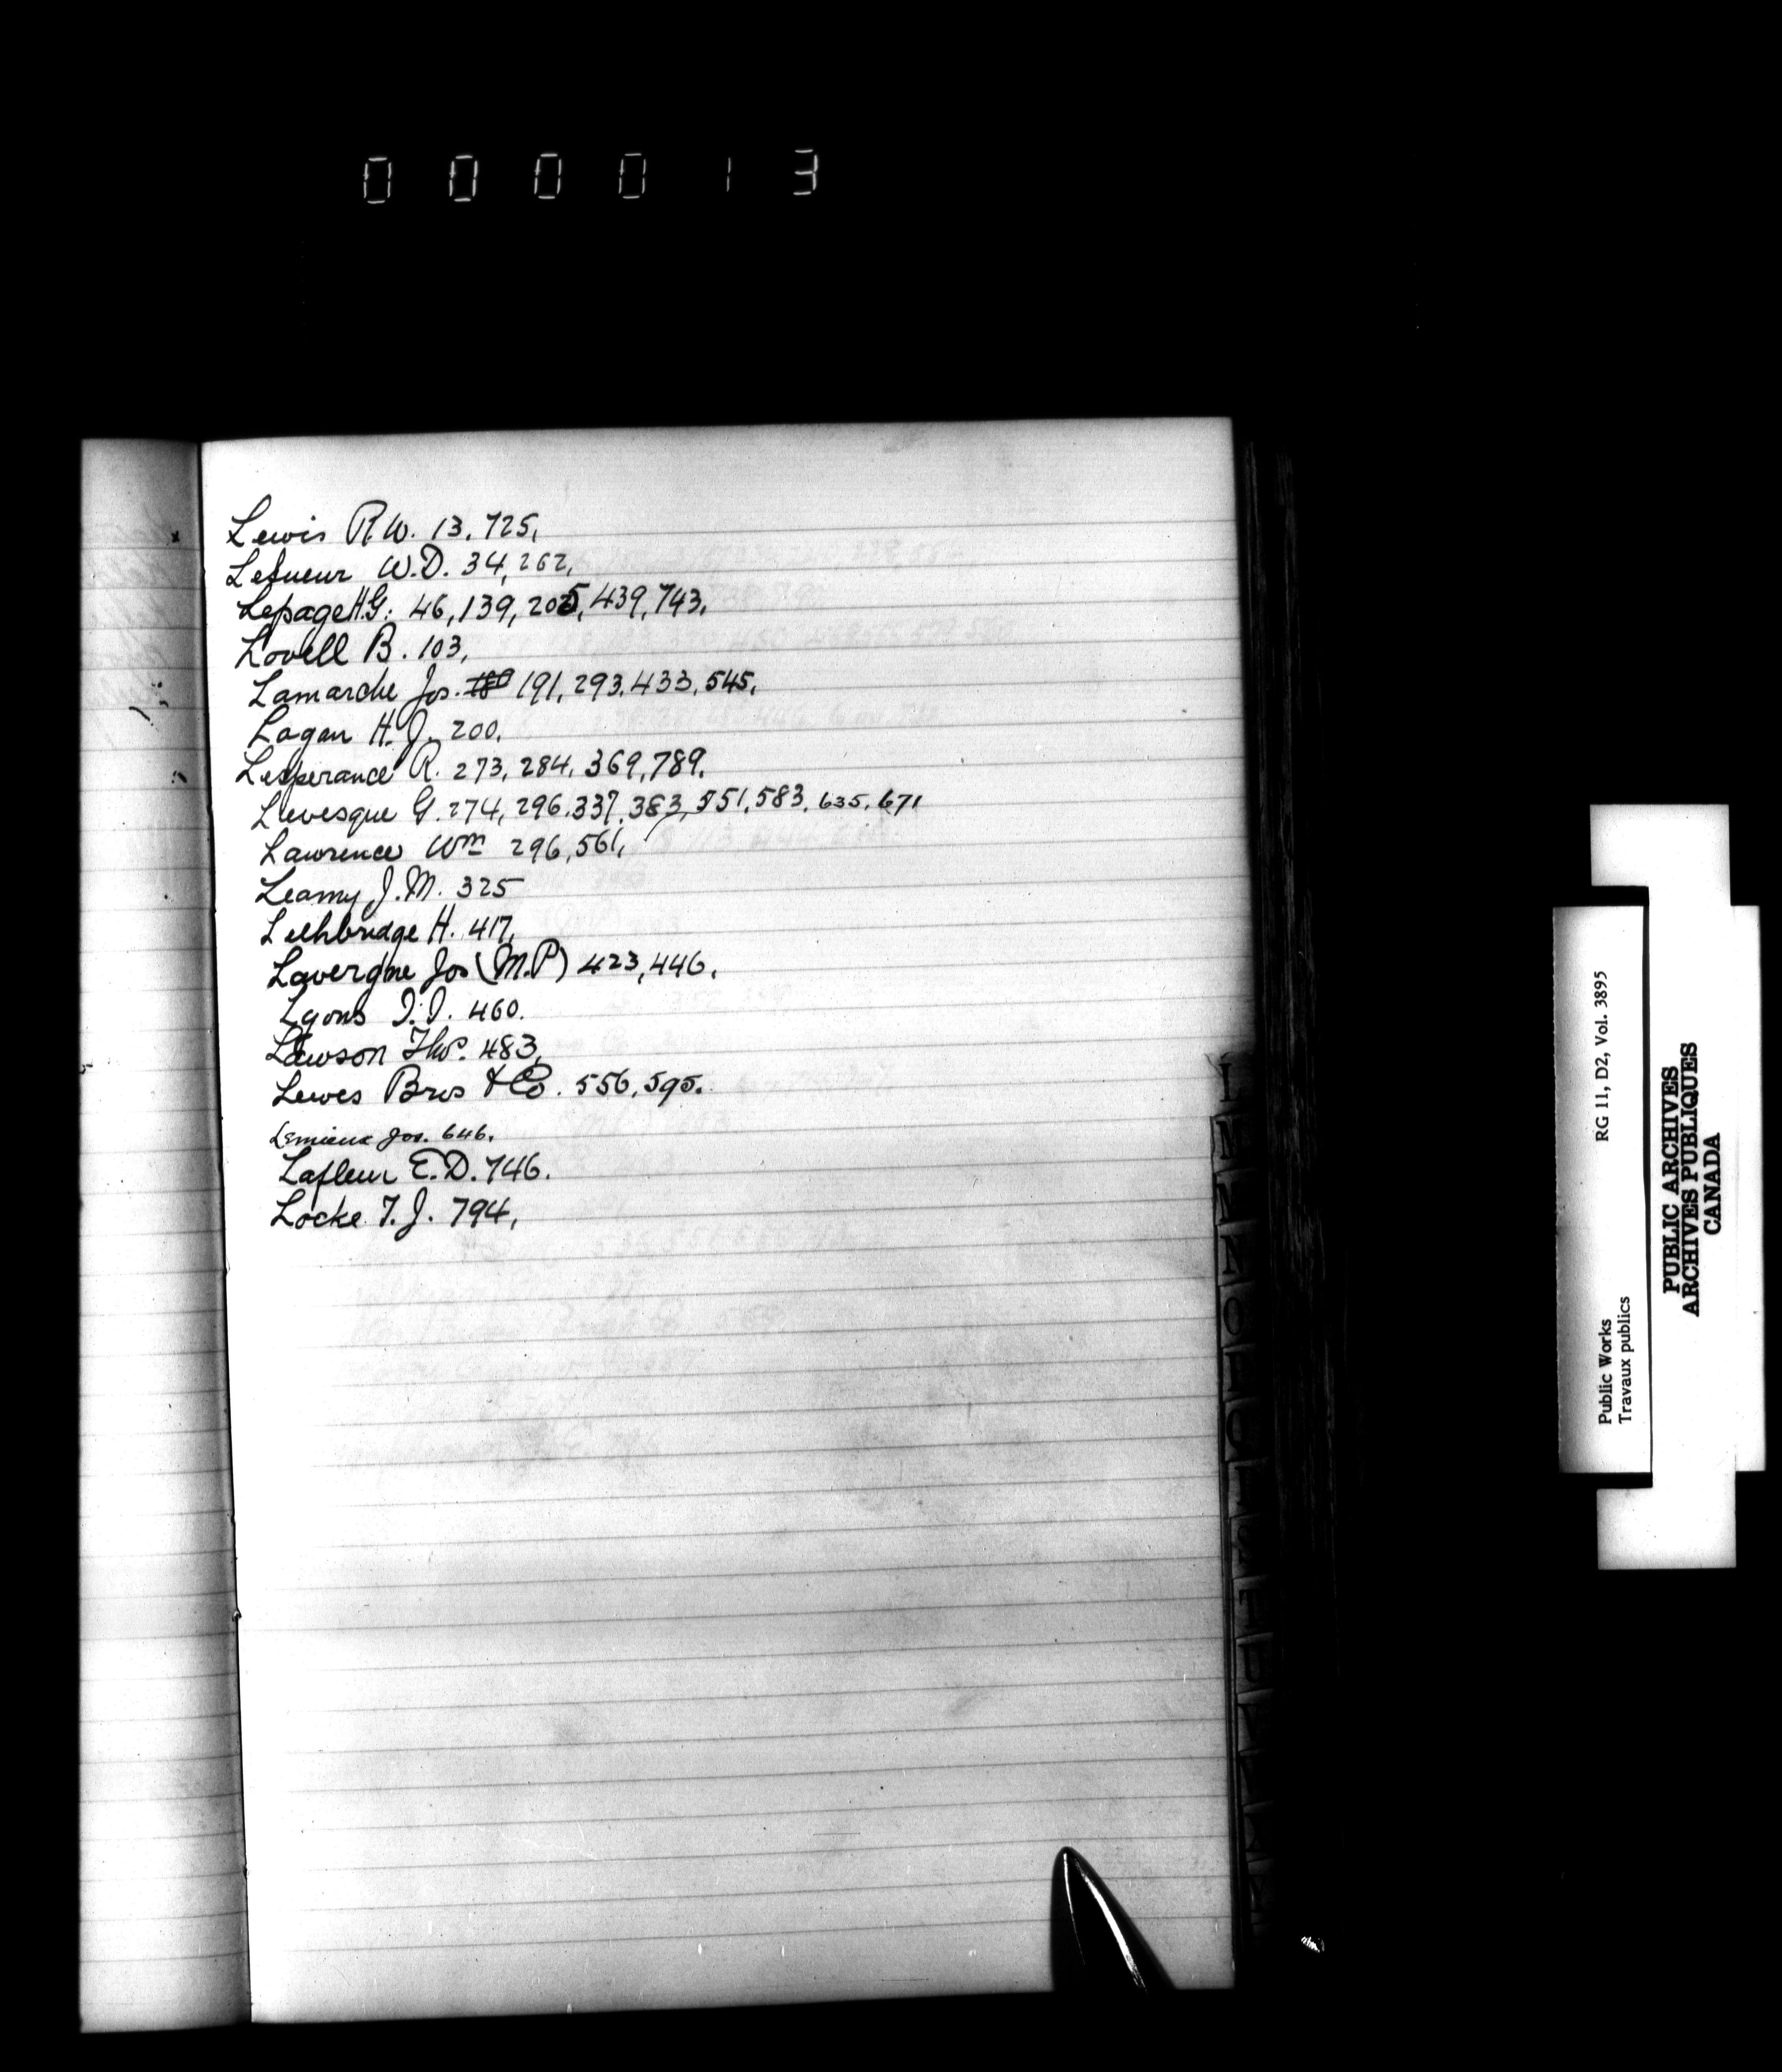 000013
Lewis R.W. 13, 725,
Lesueur W.D. 34, 262,
Lepage H.G: 46, 139, 205, 439, 743.
Lovell B. 103,
Lamarche Jos. 191, 293, 433, 545,
Logan H.J. 200,
Lesperance R. 273, 284, 369, 789.
Levesque G. 274, 296, 337, 383, 551, 583, 635, 671
Lawrence Wm 296, 561,
Leamy J.M. 325
Lethbridge H. 417,
Lavergne Jos (M.P) 423, 446,
Lyons 460.
Lawson Thos. 483,
Lewes Bros & Co. 556, 595.
Lemieux Jos. 646,
Lafleur E.D. 746.
Locke T.J. 794,
L
M
M
N
O
Public Works
Travaux publics
RG 11, D2, Vol. 3895
PUBLIC ARCHIVES
ARCHIVES PUBLIQUES
CANADA